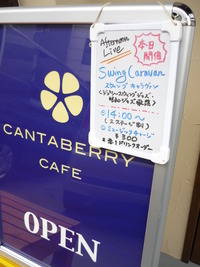 Afternoon Live
本日開催
Swing Caravan
スウィング キャラヴァン
(ジプシースウィングジャズ・
昭和ジャズ歌謡)
◎14:00〜
(2ステージ制)
◎ミュージックチャージ
¥300
+1ドリンクオーダー
CANTABERRY
CAFE
OPEN